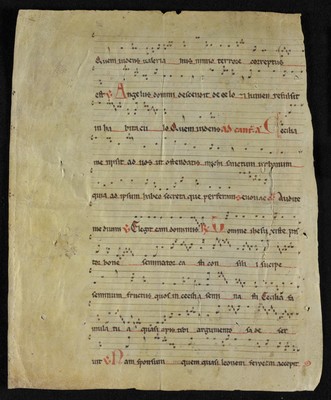 Quem uidens ualeria nus nimio terrore correptus
est Angelus domini descendit de celo & lumen refulsit
in ha bita cu lo Quem uidens ad cant̄ica Cecilia
me misit ad uos ut ostendatis michi sanctum urbanum
quia ad ipsum habeo secreta que perferam Seuouae Audite
me domini Elegit eam dominus Domine ihesu xpiste pas
tor bone seminator ca sti con silii suscipe
seminum fructus quos in cecilia semi na sti Cecilia fa
mula tu a quasi apis tibi argumento sa de ser
uit Nam sponsum quem quasi leonem ferocem accepit